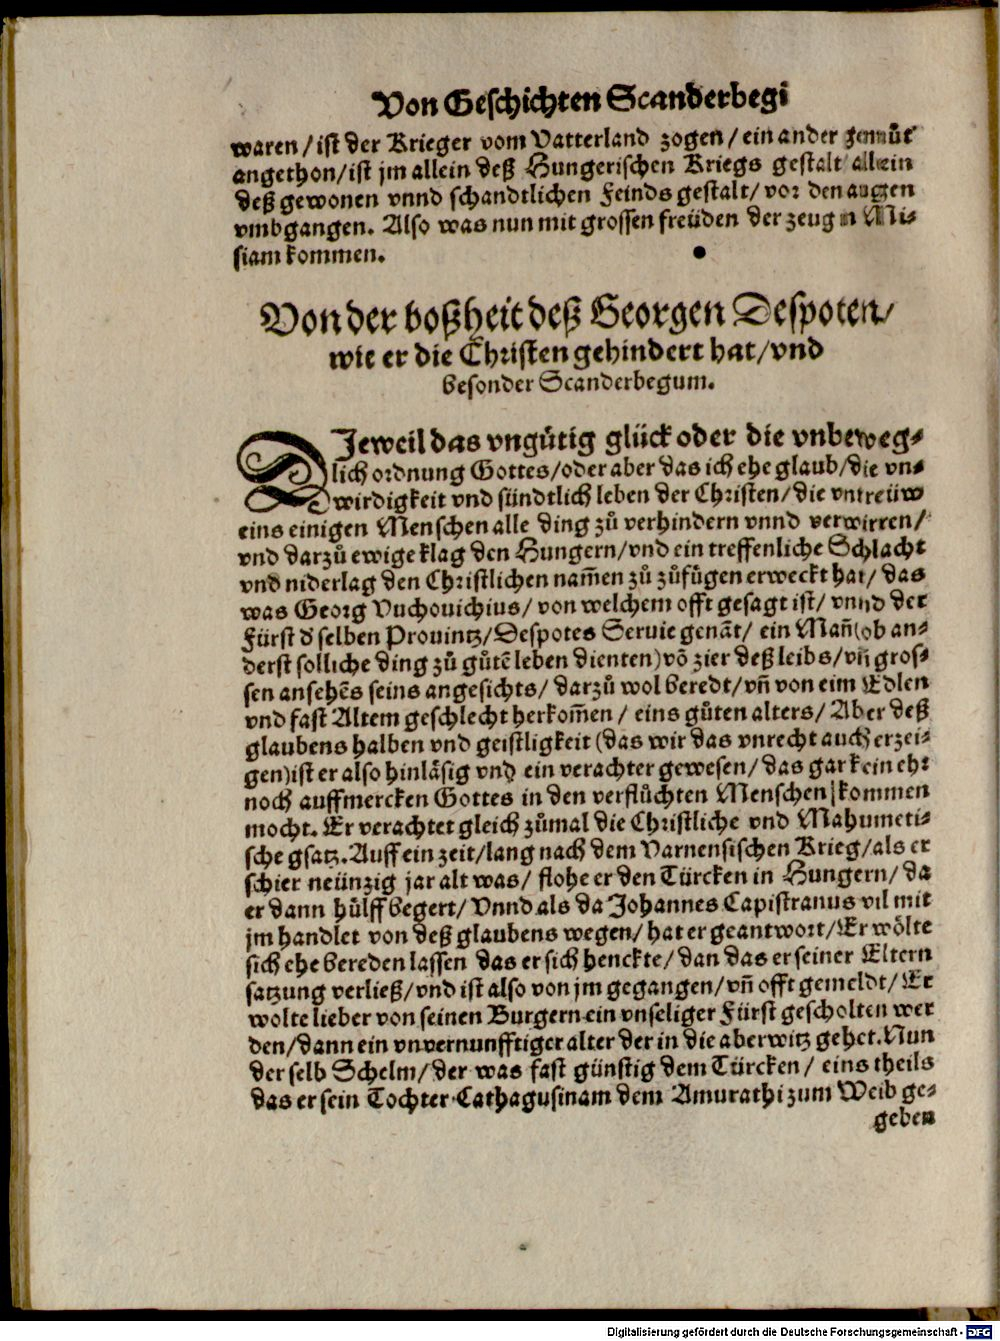 Von Geschichten Scanderbegi
waren / ist der Krieger vom Vatterland zogen / ein ander gemůt
angethon / ist jm allein deß Hungerischen Kriegs gestalt allein
deß gewonen vnnd schandtlichen Feinds gestalt / vor den augen
vmbgangen. Also was nun mit grossen freüden der zeug in Mi-
siam kommen.
Von der boßheit deß Georgen Despoten /
wie er die Christen gehindert hat / vnd
besonder Scanderbegum.
DJeweil das vngůtig glück oder die vnbeweg-
lich ordnung Gottes / oder aber das ich ehe glaub / die vn-
wirdigkeit vnd sündtlich leben der Christen / die vntreüw
eins einigen Menschen alle ding zů verhindern vnnd verwirren /
vnd darzů ewige klag den Hungern / vnd ein treffenliche Schlacht
vnd niderlag den Christlichen nam̃en zů zůfůgen erweckt hat / das
was Georg Vuchouichius / von welchem offt gesagt ist / vnnd der
Fürst d' selben Prouintz / Despotes Seruie genãt / ein Mañ (ob an-
derst solliche ding zů gůtẽ leben dienten) võ zier deß leibs / vñ gros-
sen ansehẽs seins angesichts / darzů wol beredt / vñ von eim Edlen
vnd fast Altem geschlecht herkom̃en / eins gůten alters / Aber deß
glaubens halben vnd geistligkeit (das wir das vnrecht auch erzei-
gen) ist er also hinlåsig vnd ein verachter gewesen / das gar kein ehr
noch auffmercken Gottes in den verflůchten Menschen kommen
mocht. Er verachtet gleich zůmal die Christliche vnd Mahumeti-
sche gsatz. Auff ein zeit / lang nach dem Varnensischen Krieg / als er
schier neünzig jar alt was / flohe er den Türcken in Hungern / da
er dann hůlff begert / Vnnd als da Johannes Capistranus vil mit
jm handlet von deß glaubens wegen / hat er geantwort / Er wôlte
sich ehe bereden lassen das er sich henckte / dan das er seiner Eltern
satzung verließ / vnd ist also von jm gegangen / vñ offt gemeldt / Er
wolte lieber von seinen Burgern ein vnseliger Fürst gescholten wer
den / dann ein vnvernunfftiger alter der in die aberwitz gehet. Nun
der selb Schelm / der was fast günstig dem Türcken / eins theils
das er sein Tochter Cathagusinam dem Amurathi zum Weib ge-
geben
Digitalisierung gefördert durch die Deutsche Forschungsgemeinschaft - DFG